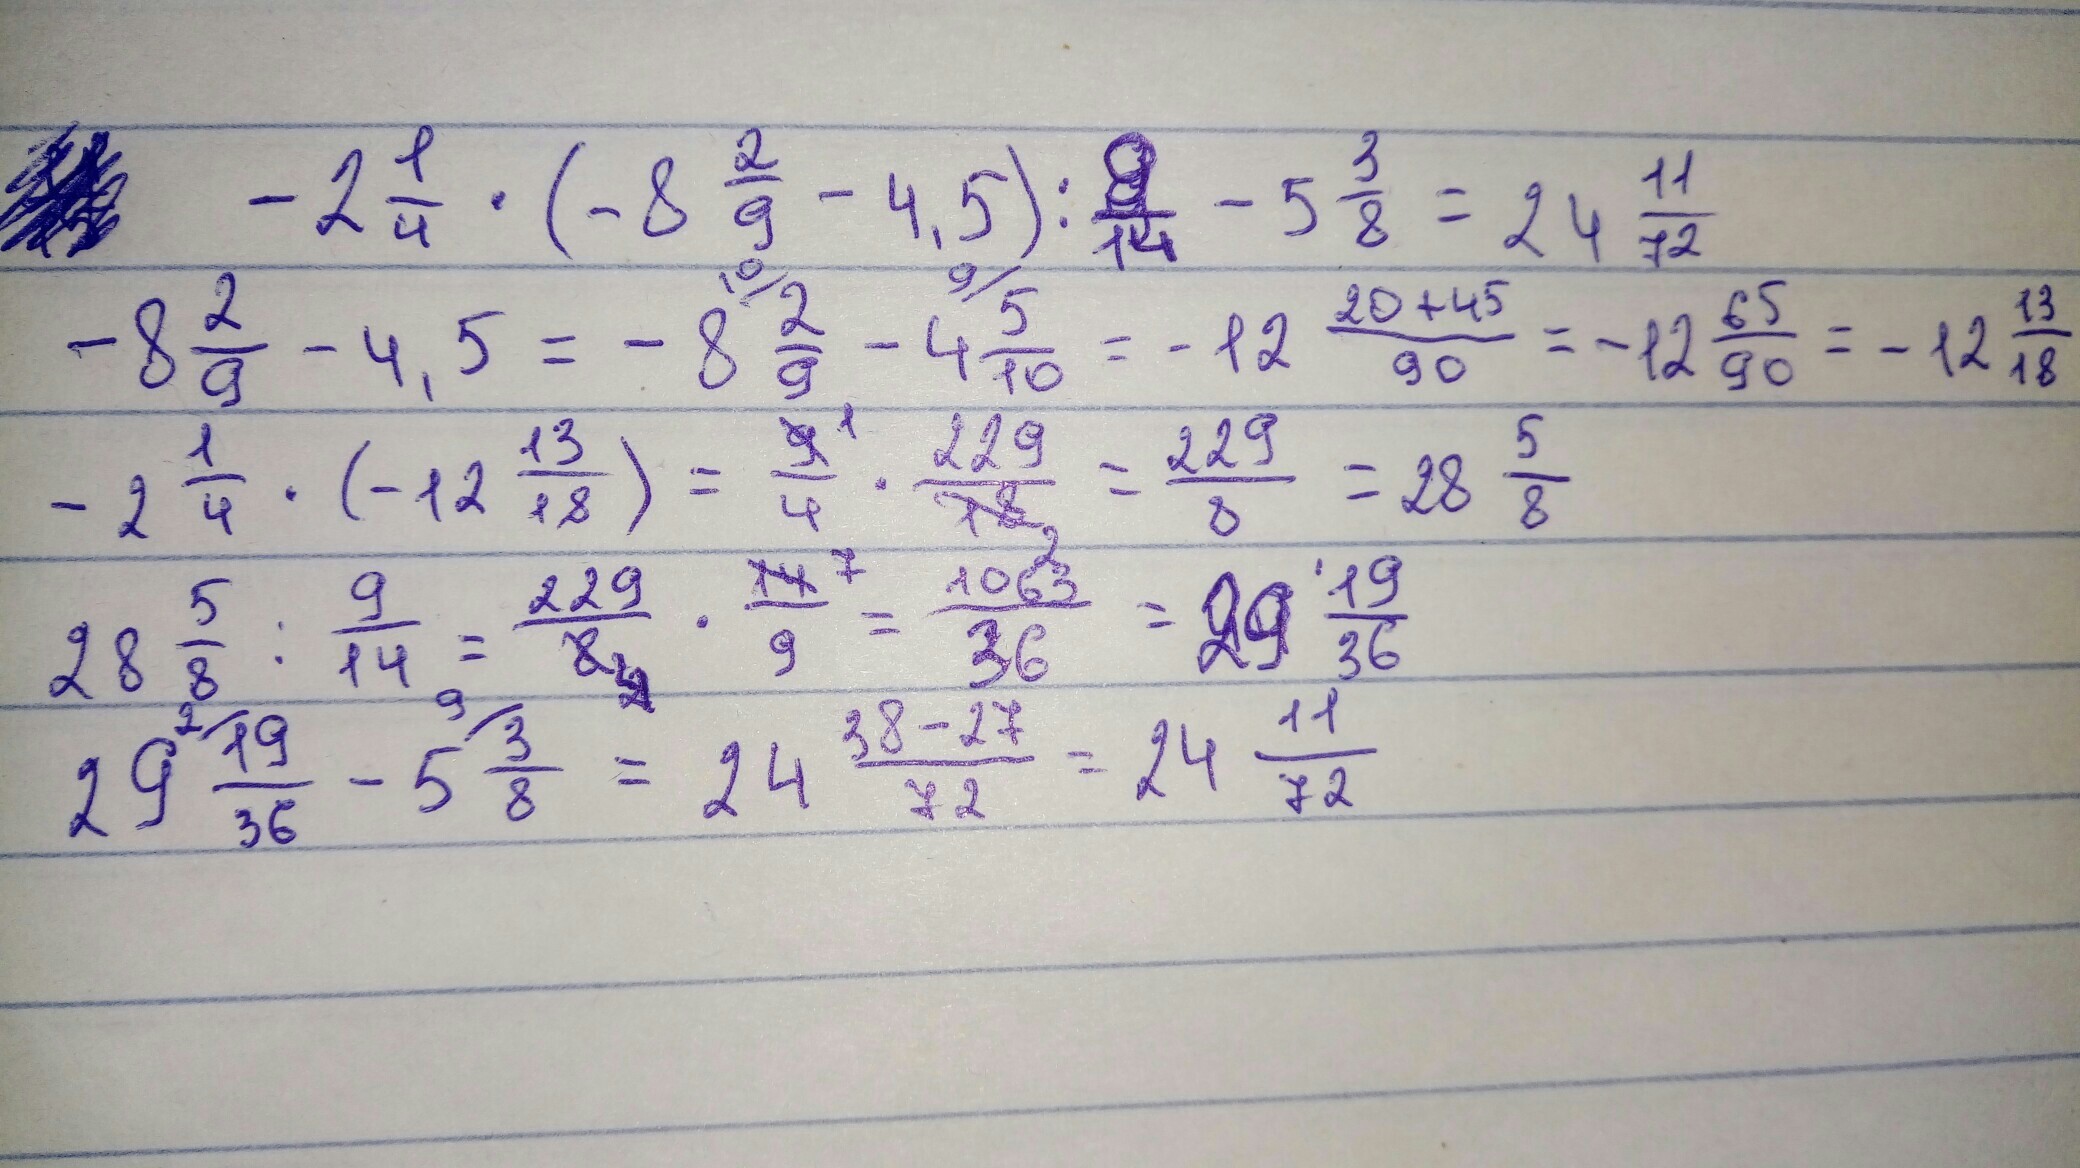 -2 1/4 · (-8 2/9 - 4,5) : 9/14 - 5 3/8 = 24 11/72
-8 2/9 - 4,5 = -8 10/ 2/9 - 4 9/ 5/10 = -12 (20+45)/90 = -12 65/90 = -12 13/18
-2 1/4 · (-12 13/18) = 9 1/4 · 229/18 2 = 229/8 = 28 5/8
28 5/8 : 9/14 = 229/8 · 14 7/9 = 1063/36 = 29 19/36
29 2/ 19/36 - 5 9/ 3/8 = 24 (38-27)/72 = 24 11/72